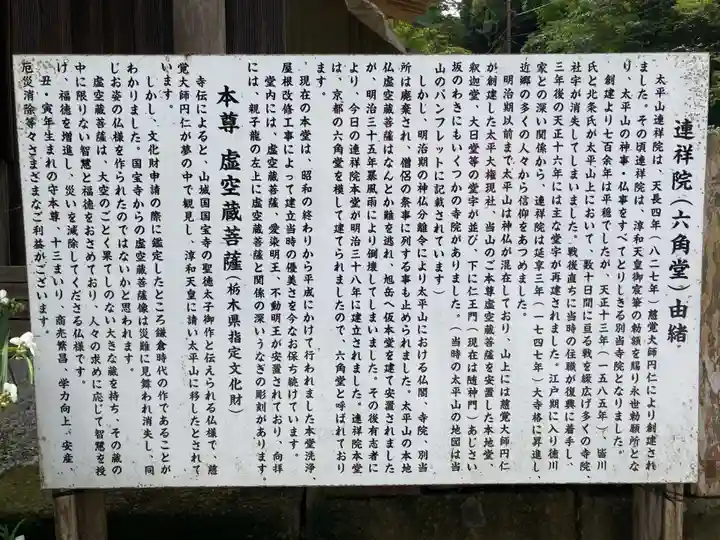 連祥院（六角堂）由緒
太平山連祥院は、天長四年（八二七年）慈覚大師円仁により創建され
ました。その頃連祥院は、淳和天皇御宸筆の勅額を賜り永世勅願所とな
り、太平山の神事・仏事をすべてとりしきる別当寺院となりました。
創建より七百余年は平穏でしたが、天正十三年（一五八五年）、皆川
氏と北条氏が太平山上において、数十日間に亘る戦を繰広げ多くの寺院、
社宇が消失してしまいました。戦後直ちに当時の住職が復興に着手し、
三年後の天正十六年には主な堂宇が再建されました。江戸期に入り徳川
家との深い関係から、連祥院は延享三年（一七四七年）大寺格に昇進し、
近郷の多くの人々から信仰をあつめました。
明治期以前まで太平山は神仏が混在しており、山上には慈覚大師円仁
が創建した太平大権現社、当山のご本尊虚空蔵菩薩を安置した本地堂、
釈迦堂、大日堂等の堂宇が並び、下に仁王門（現在は随神門）、あじさい
坂のわきにもいくつかの寺院がありました。（当時の太平山の地図は当
山のパンフレットに記載されています）
しかし、明治期の神仏分離令により太平山における仏閣、寺院、別当
所は廃棄され、僧侶の祭事に列する事も止められました。太平山の本地
仏虚空蔵菩薩はなんとか難を逃れ、旭岳へ仮本堂を建て安置されました
が、明治三十五年暴風雨により倒壊してしまいました。その後有志者に
より、今日の連祥院本堂が明治三十八年に建立されました。連祥院本堂
は、京都の六角堂を模して建てられましたので、六角堂と呼ばれており
ます。
現在の本堂は、昭和の終わりから平成にかけて行われました本堂洗浄、
屋根改修工事によって建立当時の優美さを今なお保ち続けています。
堂内には、虚空蔵菩薩、愛染明王、不動明王が安置されており、向拝
には、親子龍の左上に虚空蔵菩薩と関係の深いうなぎの彫刻があります。
本尊 虚空蔵菩薩（栃木県指定文化財）
寺伝によると、山城国国宝寺の聖徳太子御作と伝えられる仏様で、慈
覚大師円仁が夢の中で観見し、淳和天皇に請い太平山に移したとされて
います。
しかし、文化財申請の際に鑑定したところ鎌倉時代の作であることが
わかりました。国宝寺からの虚空蔵菩薩像は災難に見舞われ消失し、同
じお姿の仏様を作られたのではないかと思われます。
虚空蔵菩薩は、大空のごとく果てしのない大きな蔵を持ち、その蔵の
中に限りない智慧と福徳をおさめており、人々の求めに応じて智慧を授
け、福徳を増進し、災いを滅除してくださる仏様です。
丑・寅年生まれの守本尊、十三まいり、商売繁昌、学力向上、安産
厄災消除等々さまざまなご利益がございます。